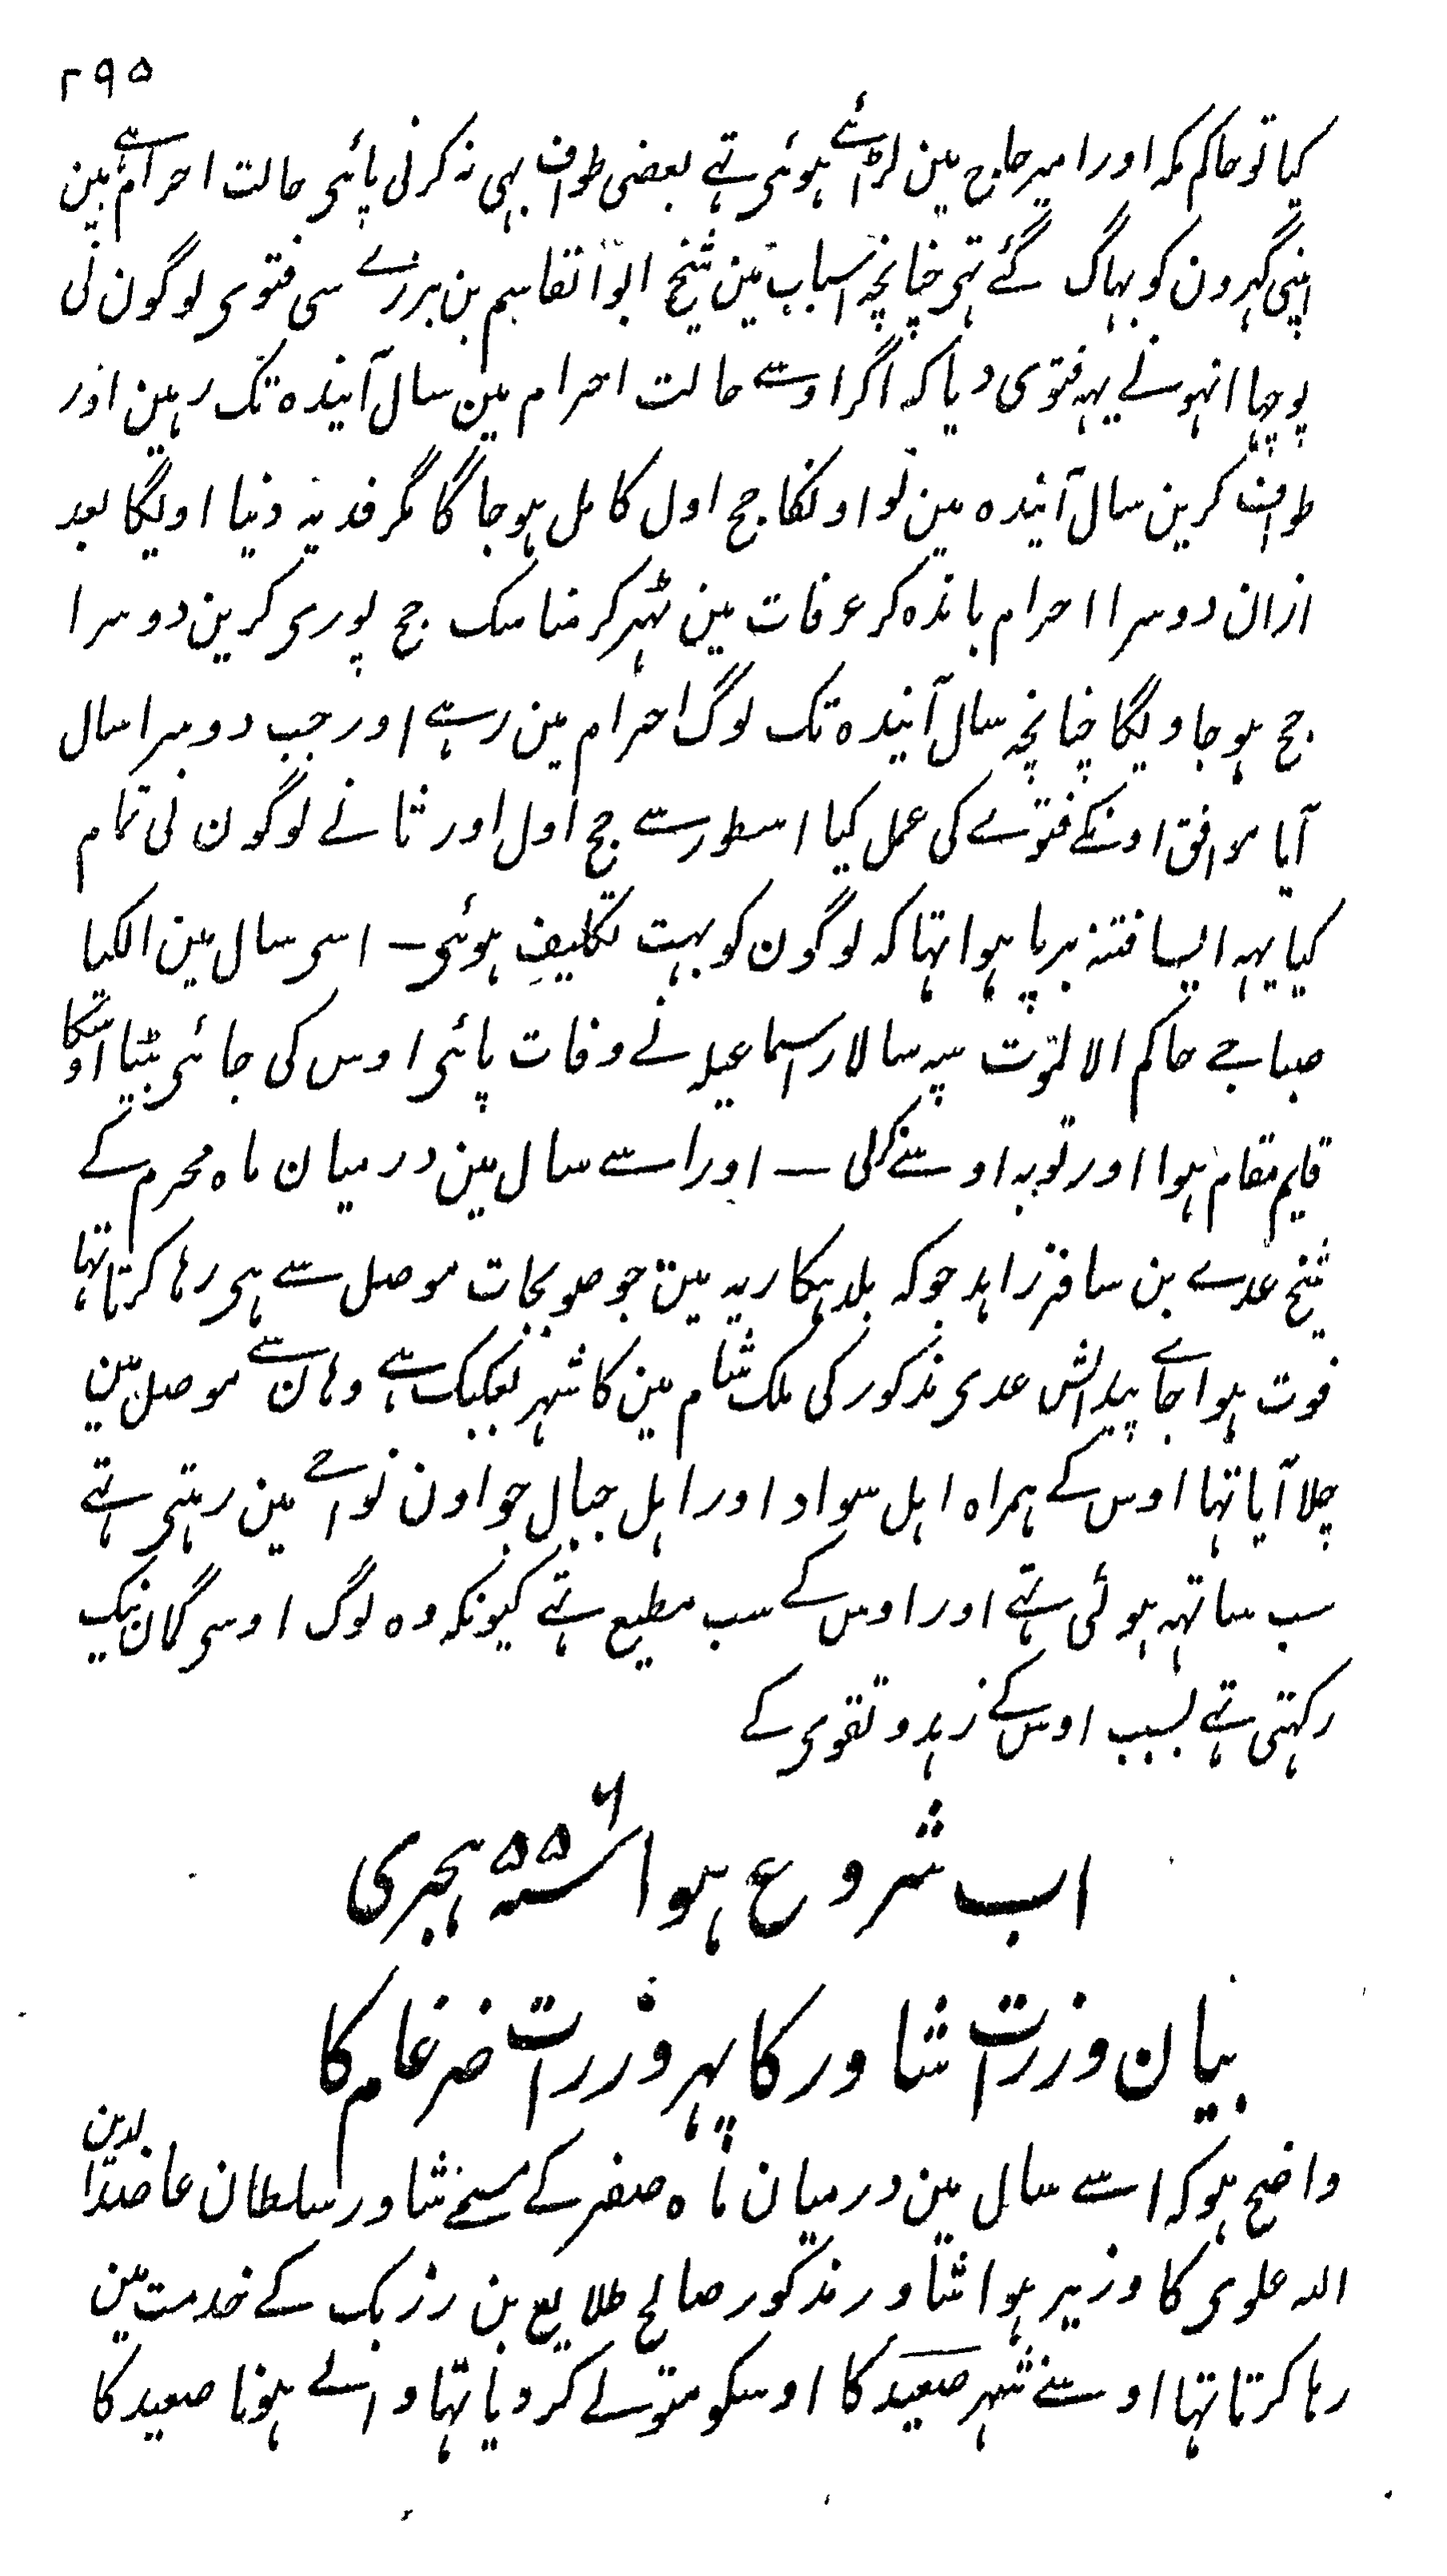 ۲۹۵
کیا تو حاکم مکہ اور امیر حاج مین لڑائے ہوئی تہے بعضی طواف بہی نہ کرنی پائی حالت احرام ہے مین
اپنی گہرون کو بہاگ گئے تہی چنانچہ اسباب مین شیخ ابو القاسم بن برزے سی فتوی لوگون نی
پوچہا انہونے یہہ فتوی دیا کہ اگر اوسے حالت احرام مین سال آیندہ تک رہین اور
طواف کرین سال آیندہ مین تو اونکا حج اول کامل ہو جاگا مگر فدیہ دنیا اویگا بعد
ازان دوسرا احرام باندہ کر عرفات مین ٹہر کر مناسک حج پوری کرین دوسرا
حج ہو جاویگا چنانچہ سال آیندہ تک لوگ احرام مین رہے اور جب دوسرا سال
آیا موافق اونکے فتوے کی عمل کیا اسطور سے حج اول اور ثانے لوگون نی تمام
کیا یہہ ایسا فتنہ برپا ہوا تہا کہ لوگون کو بہت تکلیف ہوئی ــ اسی سال مین الکیا
صباحے حاکم الالموت سپہ سالار اسماعیلہ نے وفات پائی اوس کی جائی بیٹا اوسکا
قایم مقام ہوا اور توبہ اوسنے کرلی ــ اور اسے سال مین درمیان ماہ محرم کے
شیخ عدے بن مسافر زاہد جو کہ بلد ہکاریہ مین جو صوبجات موصل سے ہی رہا کرتا تہا
فوت ہوا جاے پیدائش عدی مذکور کی ملک شام مین کا شہر بعلبک ہے وہان سے موصل مین
چلا آیا تہا اوس کے ہمراہ اہل سواد اور اہل جبال جو اون نواحے مین رہتی تہے
سب ساتہہ ہوئی تہے اور اوس کے سب مطیع تہے کیونکہ وہ لوگ اوسی گمان نیک
رکہتی تہے بسبب اوس کے زہد و تقوی کے
اب شروع ہوا سنہ ۵۵۶ ہجری
بیان وزرات شاور کا پہر وزرات ضرغام کا
واضح ہو کہ اسے سال مین درمیان ماہ صفر کے مسمے شاور سلطان عاضدالدین
اللہ علوی کا وزیر ہوا شاور مذکور صالح طلایع بن رزیک کے خدمت مین
رہا کرتا تہا اوسنے شہر صعید کا اوسکو متولے کر دیا تہا والے ہونا صعید کا